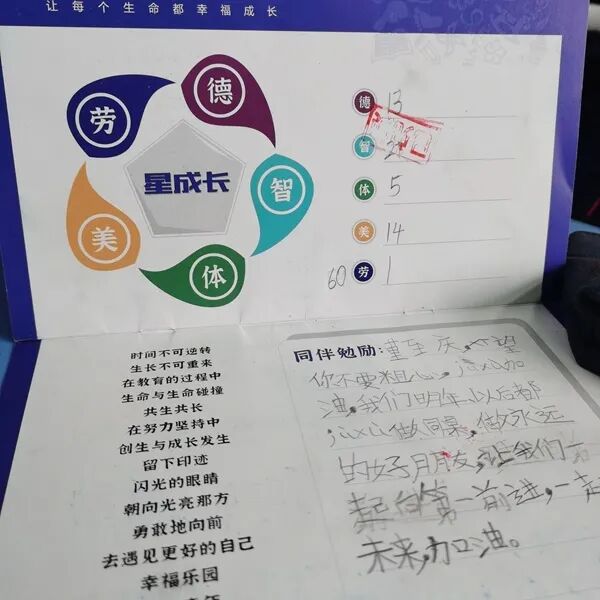 让每个生命都幸福成长
德
智
体
美
劳
星成长
德 13
智
体 5
美 14
60 劳 1
时间不可逆转
生长不可重来
在教育的过程中
生命与生命碰撞
共生共长
在努力坚持中
创生与成长发生
留下印迹
闪光的眼睛
朝向光亮那方
勇敢地向前
去遇见更好的自己
幸福乐园
同伴勉励:董至庆,希望
你不要粗心,加
油,我们明年以后都
做同桌,做永远
的好朋友,让我们一
起向第一前进,一起
未来,加油。